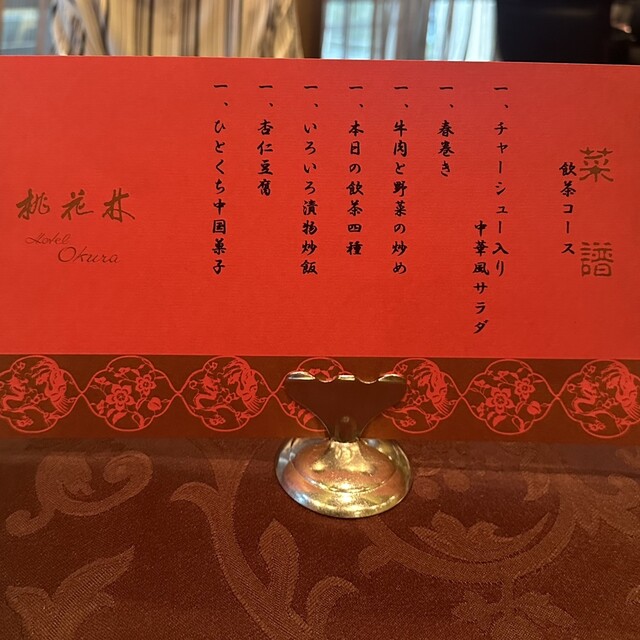 菜譜
飲茶コース
一、チャーシュー入り
中華風サラダ
一、春巻き
一、牛肉と野菜の炒め
一、本日の飲茶四種
一、いろいろ漬物炒飯
一、杏仁豆腐
一、ひとくち中国菓子
桃花林
Hotel
Okura